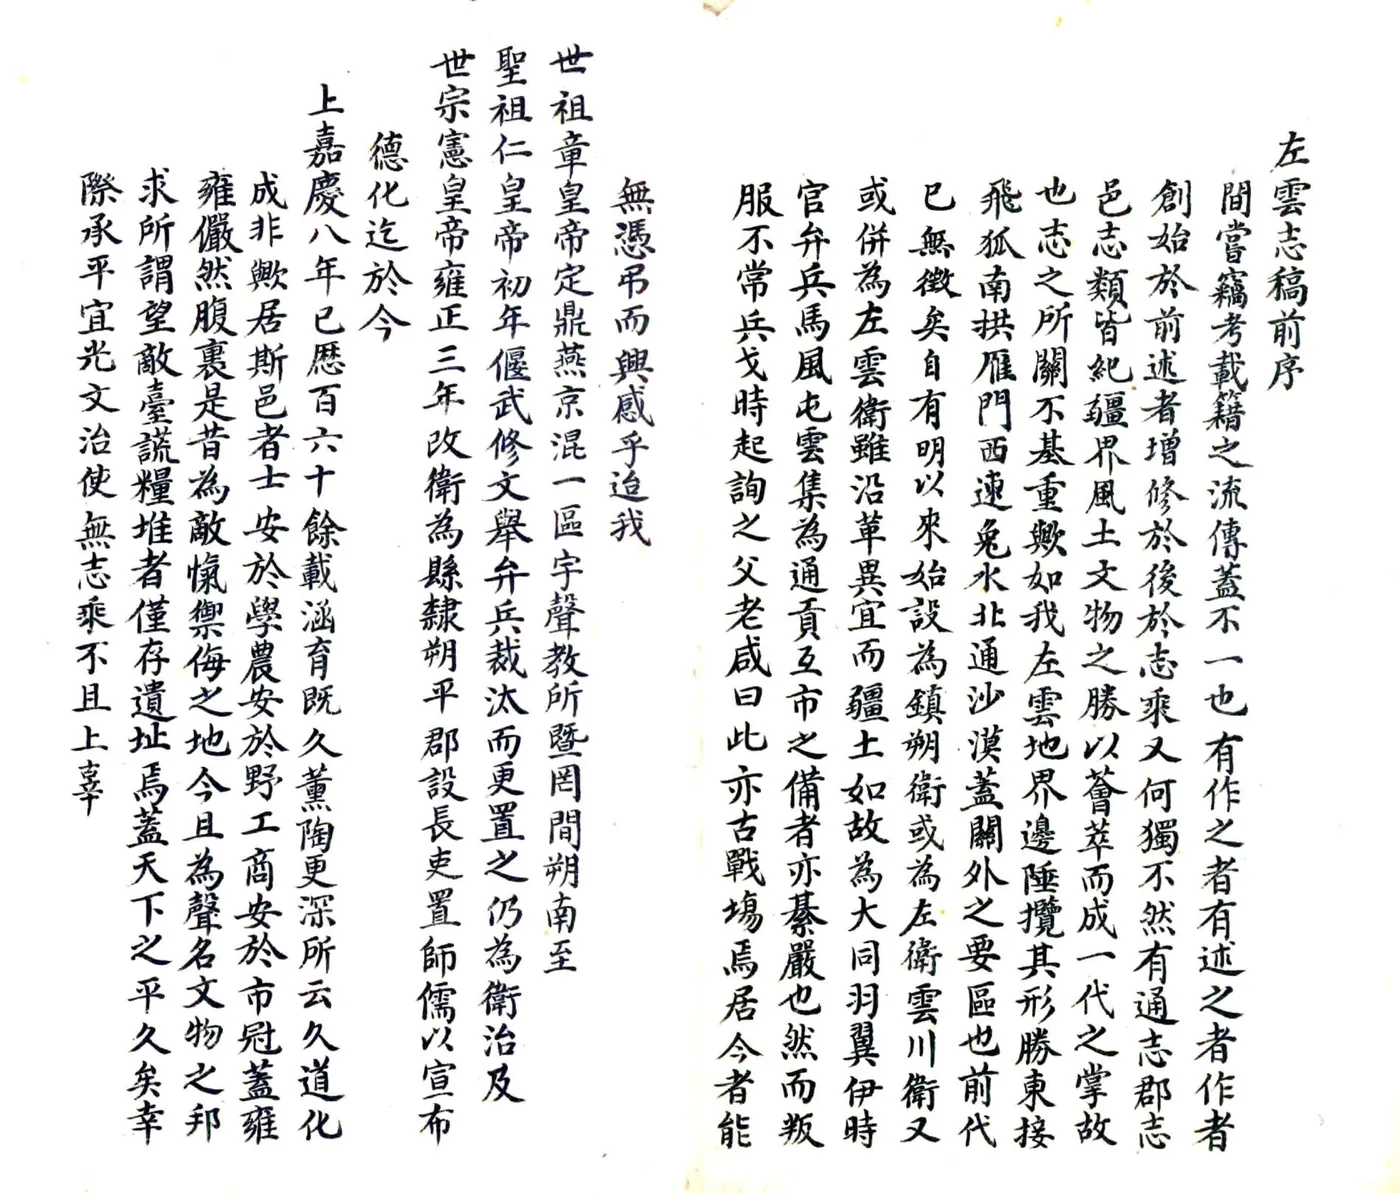 左雲志稿前序
間嘗竊考載籍之流傳蓋不一也有作之者有述之者作者
創始於前述者增修於後於志乘又何獨不然有通志郡志
邑志類皆紀疆界風土文物之勝以薈萃而成一代之掌故
也志之所關不基重歟如我左雲地界邊陲攬其形勝東接
飛狐南拱雁門西連兔水北通沙漠蓋關外之要區也前代
已無徵矣自有明以來始設為鎮朔衛或為左衛雲川衛又
或併為左雲衛雖沿革異宜而疆土如故為大同羽翼伊時
官弁兵馬風屯雲集為通貢互市之備者亦綦嚴也然而叛
服不常兵戈時起詢之父老咸曰此亦古戰場焉居今者能
無憑弔而興感乎迨我
世祖章皇帝定鼎燕京混一區宇聲教所暨罔間朔南至
聖祖仁皇帝初年偃武修文舉弁兵裁汰而更置之仍為衛治及
世宗憲皇帝雍正三年改衛為縣隸朔平郡設長吏置師儒以宣布
德化迄於今
上嘉慶八年已歷百六十餘載涵育既久薰陶更深所云久道化
成非歟居斯邑者士安於學農安於野工商安於市冠蓋雍
雍儼然腹裏是昔為敵愾禦侮之地今且為聲名文物之邦
求所謂望敵臺謊糧堆者僅存遺址焉蓋天下之平久矣幸
際承平宜光文治使無志乘不且上辜